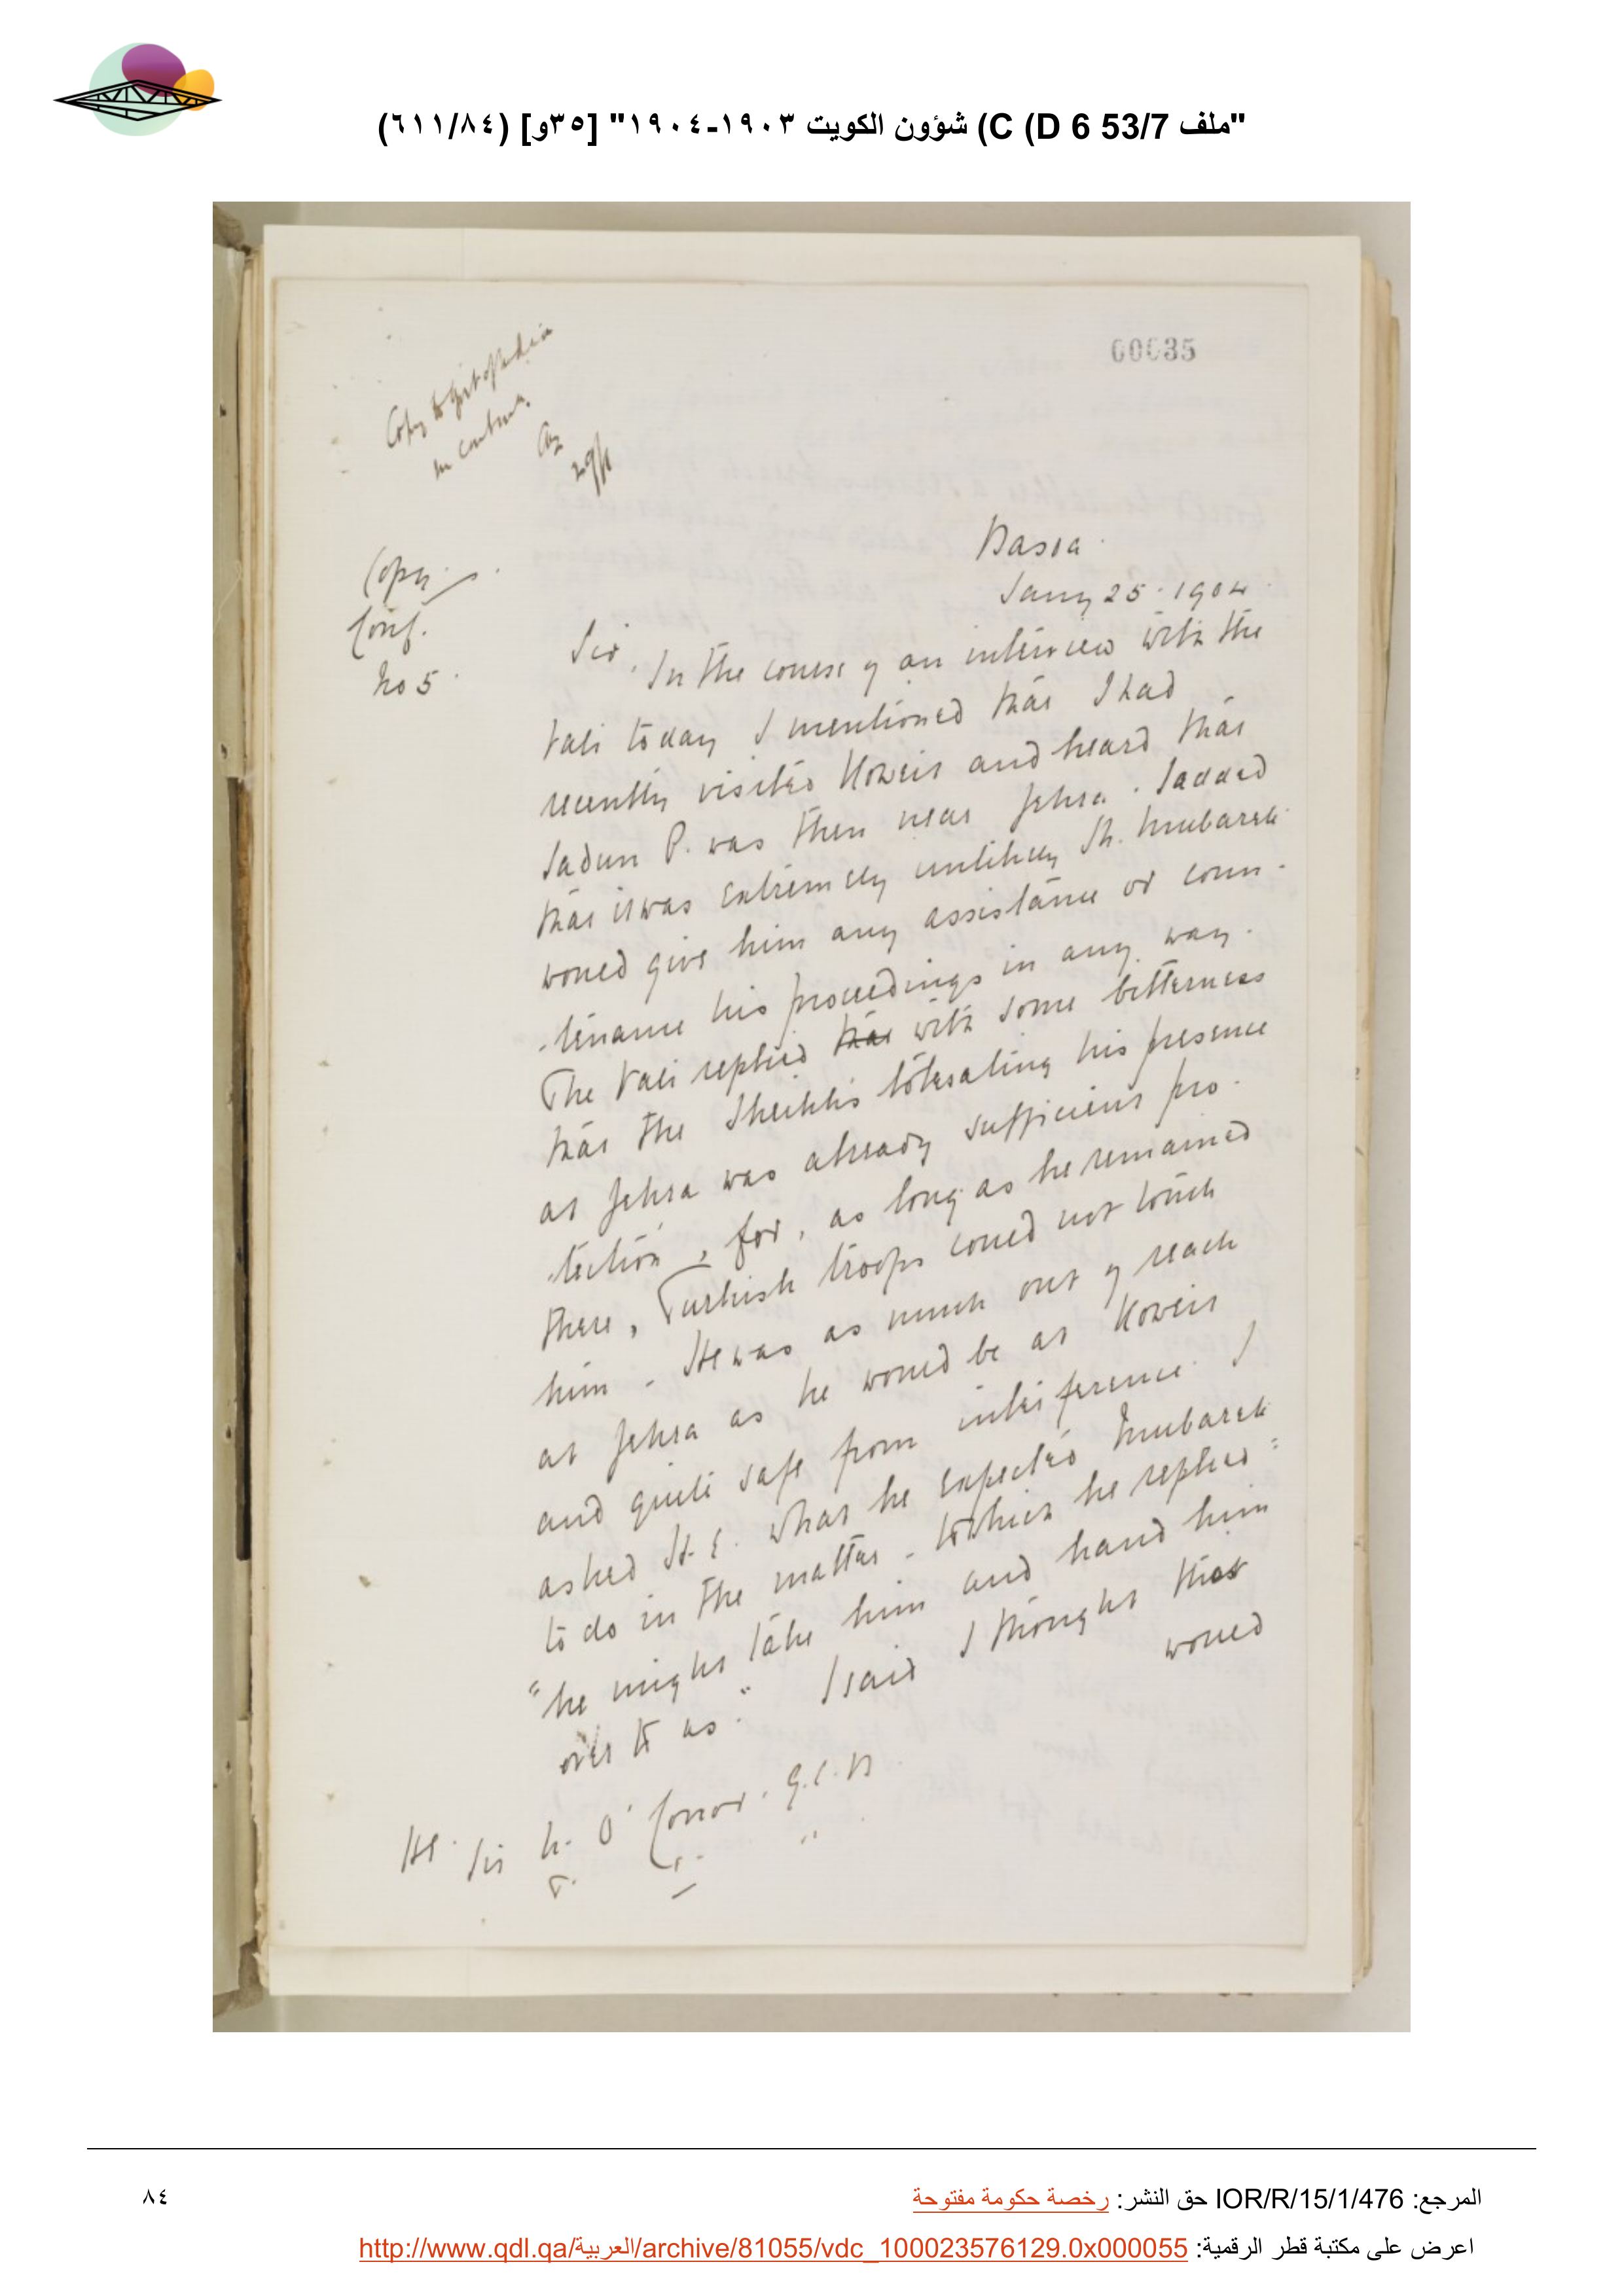 "ملف 53/7 D 6) C) شؤون الكويت ١٩٠٣-١٩٠٤" [٣٥و] (٦١١/٨٤)
00035
Copy to Govt of India
in contn.
29/1
Basra.
Jany 25. 1904
Copy.
Conf.
No 5.
Sir, In the course of an interview with the
Vali today I mentioned that I had
recently visited Koweit and heard that
Sadun P. was then near Jehra. I added
that it was extremely unlikely Sh. Mubarek
would give him any assistance or coun-
-tenance his proceedings in any way.
The Vali replied that with some bitterness
that the Sheikh's tolerating his presence
at Jehra was already sufficient pro-
-tection, for, as long as he remained
there, Turkish troops could not touch
him. He was as much out of reach
at Jehra as he would be at Koweit
and quite safe from interference. I
asked H.E. what he expected Mubarek
to do in the matter - to which he replied:
"he might take him and hand him
over to us." I said I thought that
would
HE. Sir N. O'Conor. G.C.B.
المرجع: IOR/R/15/1/476 حق النشر: رخصة حكومة مفتوحة
٨٤
اعرض على مكتبة قطر الرقمية: http://www.qdl.qa/العربية/archive/81055/vdc_100023576129.0x000055